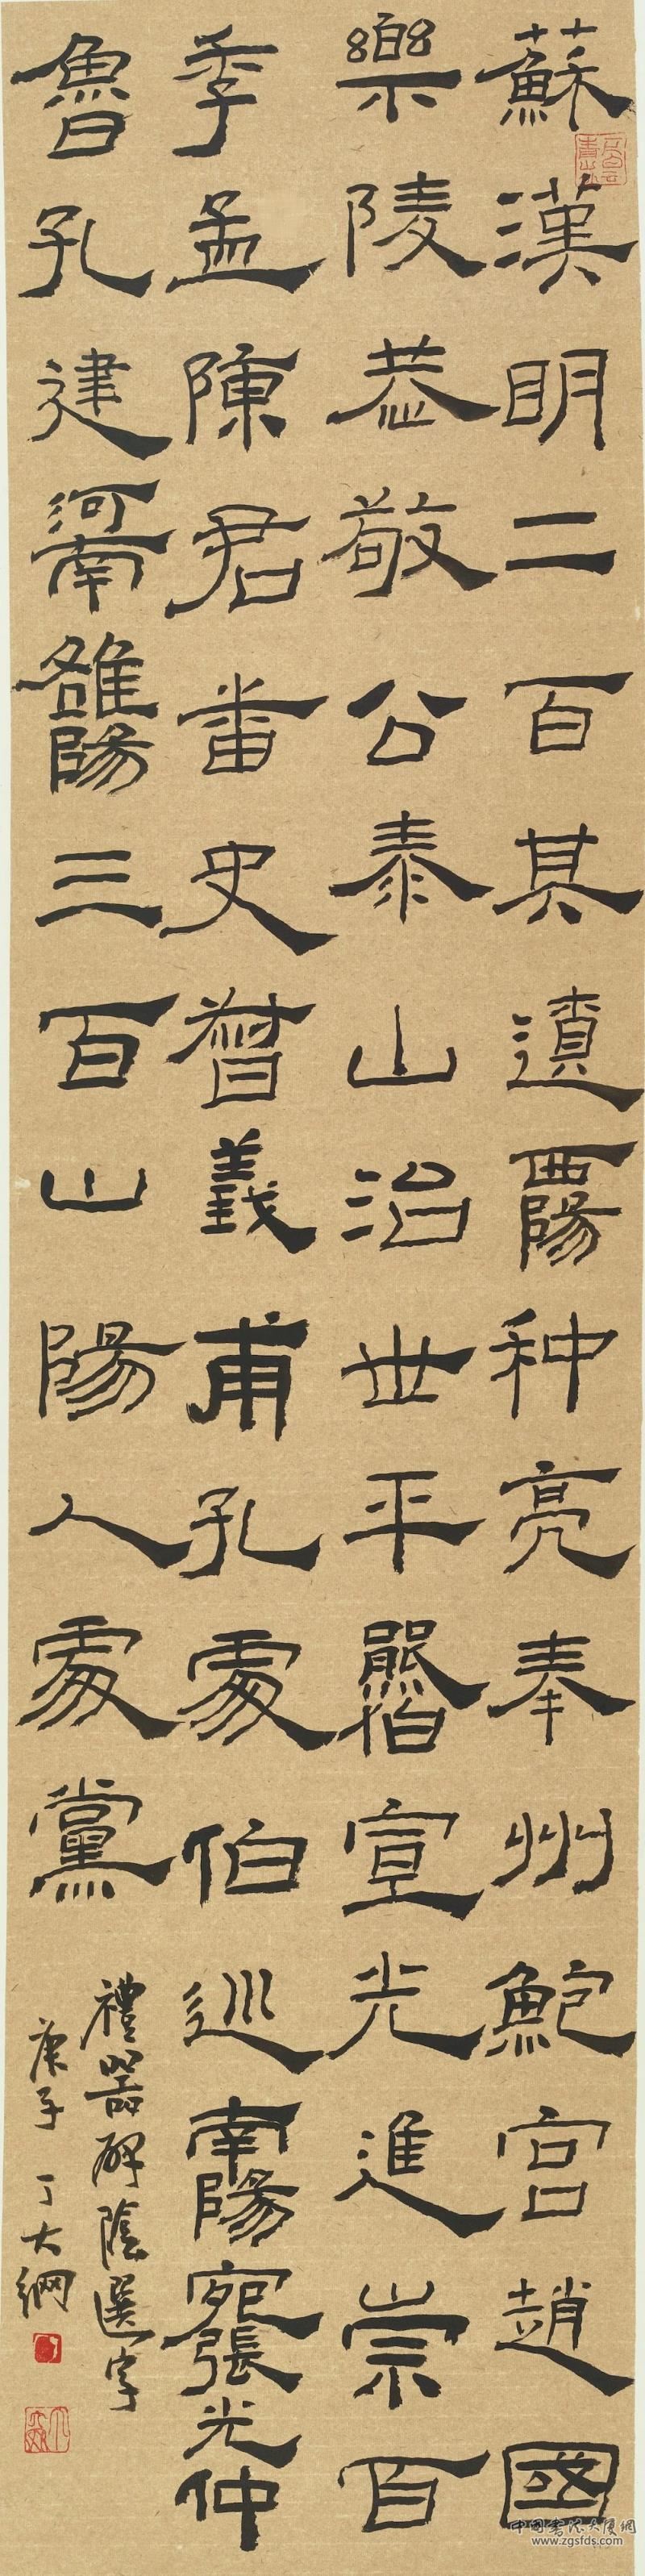 蘇漢明二百其遺西陽种亮奉州鮑宮趙國
樂陵恭敬公泰山治世平熊伯宣光進崇百
季孟陳君番史智義甫孔處伯巡南陽宛張光仲
魯孔建河南雒陽三百山陽人處黨
禮器碑陰選字
庚子丁大綱
中国书法大厦网
www.zgsfds.com